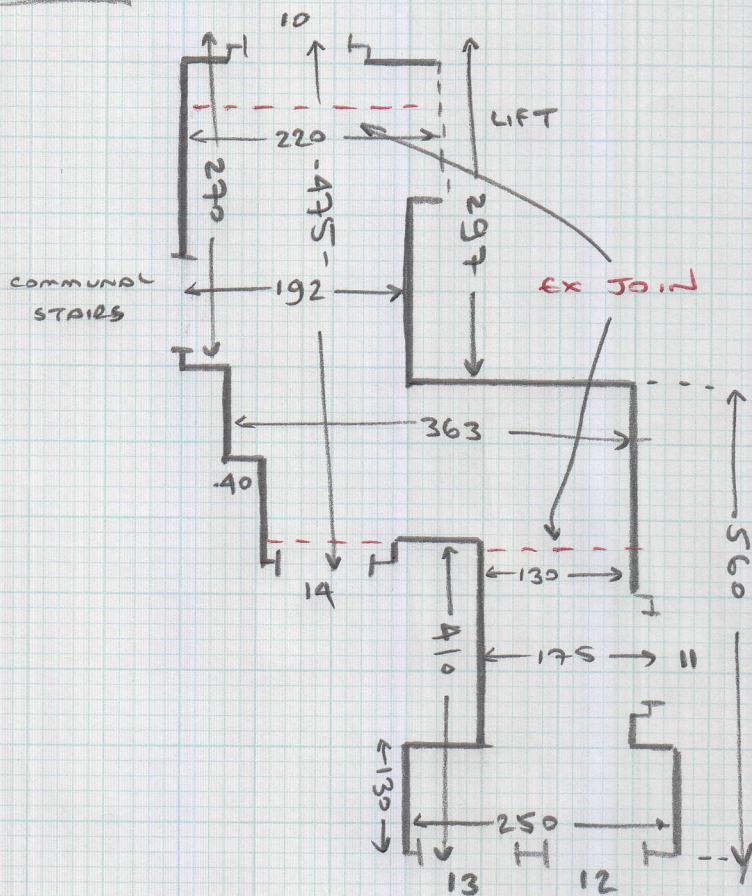 10
LIFT
220
270
.475-
297
COMMUNAL
STAIRS
192
EX JOIN
363
.40
560
14
130
410
175
11
130
250
13
12